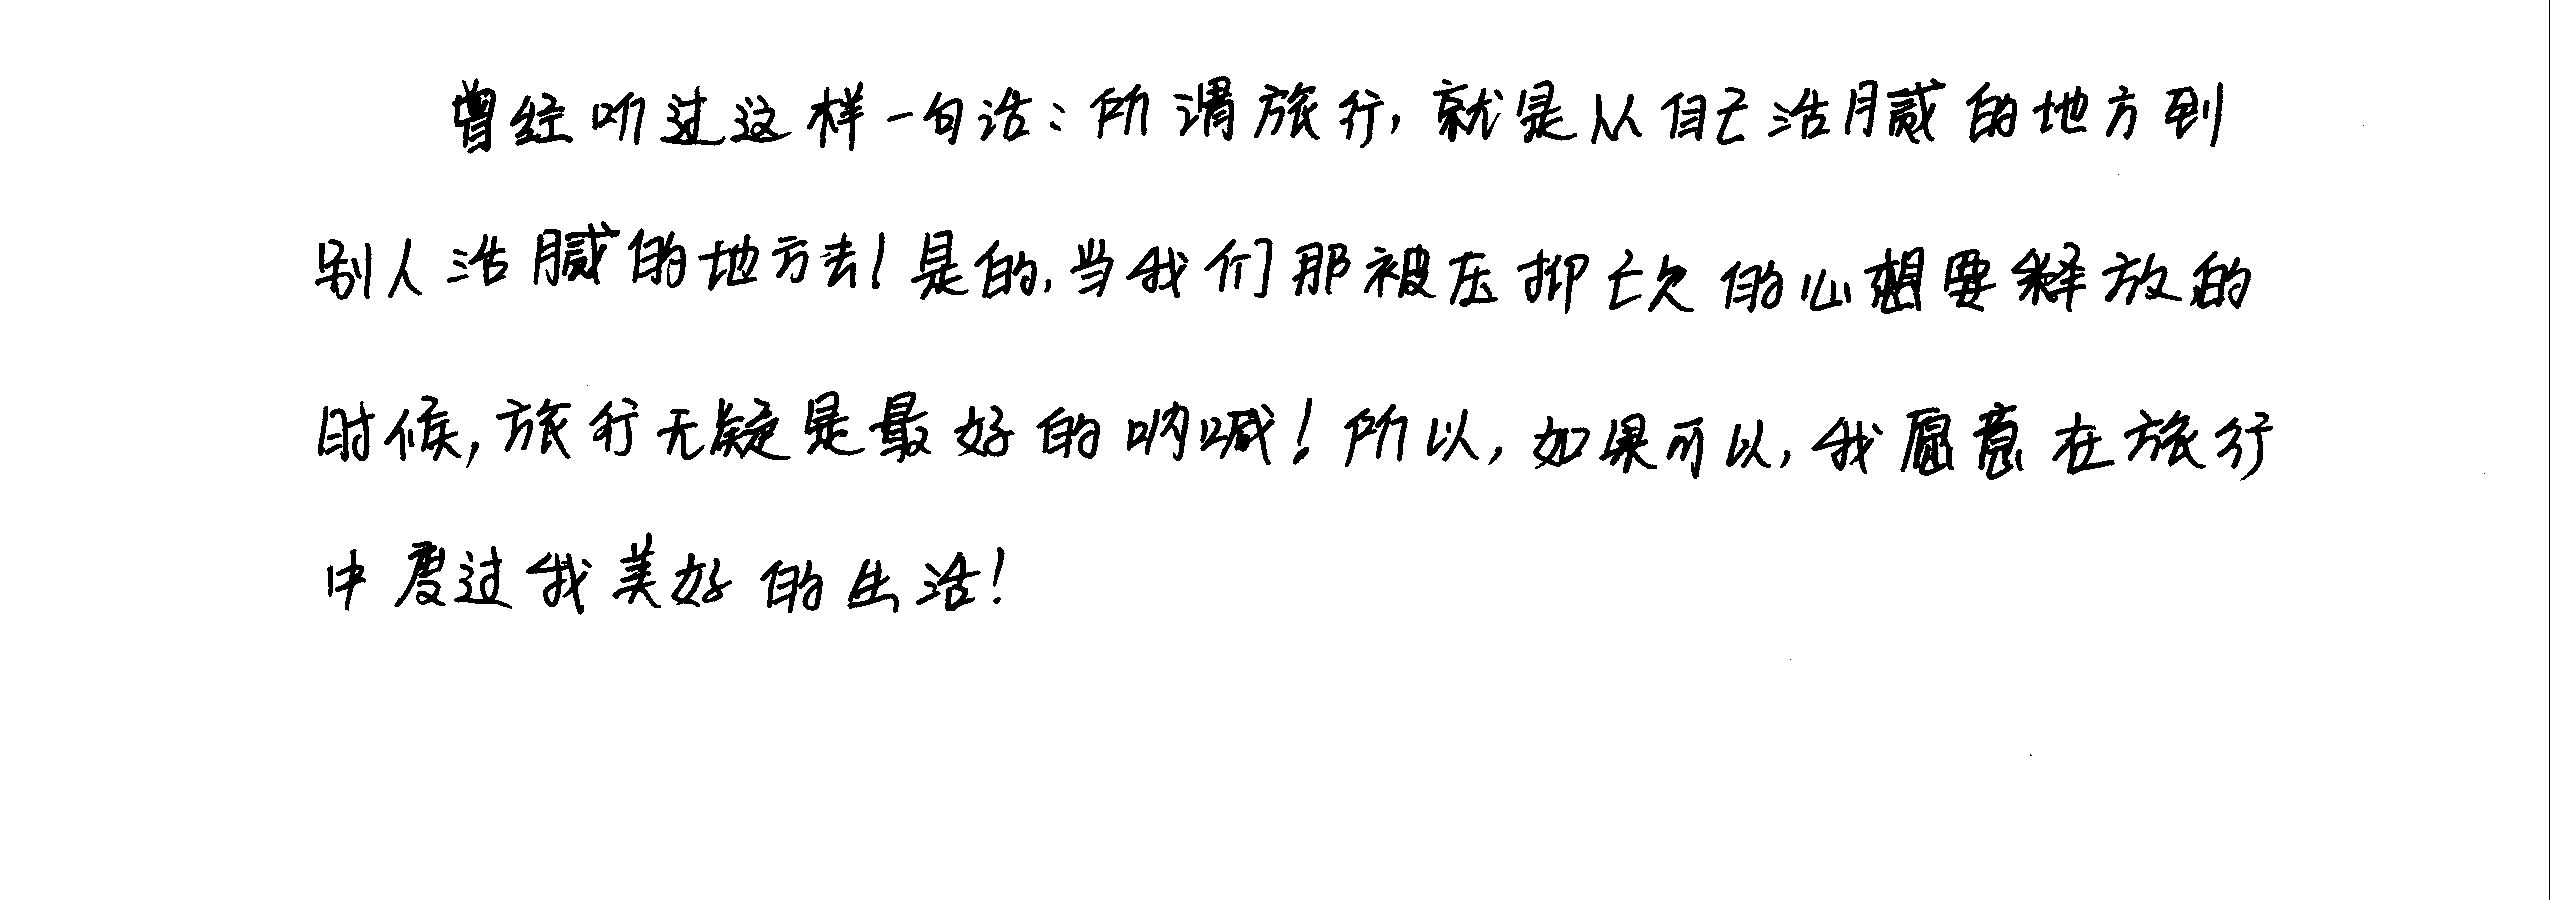 曾经听过这样一句话:所谓旅行,就是从自己活腻的地方到
别人活腻的地方去!是的,当我们那被压抑已久的心想要释放的
时候,旅行无疑是最好的呐喊!所以,如果可以,我愿意在旅行
中度过我美好的生活!